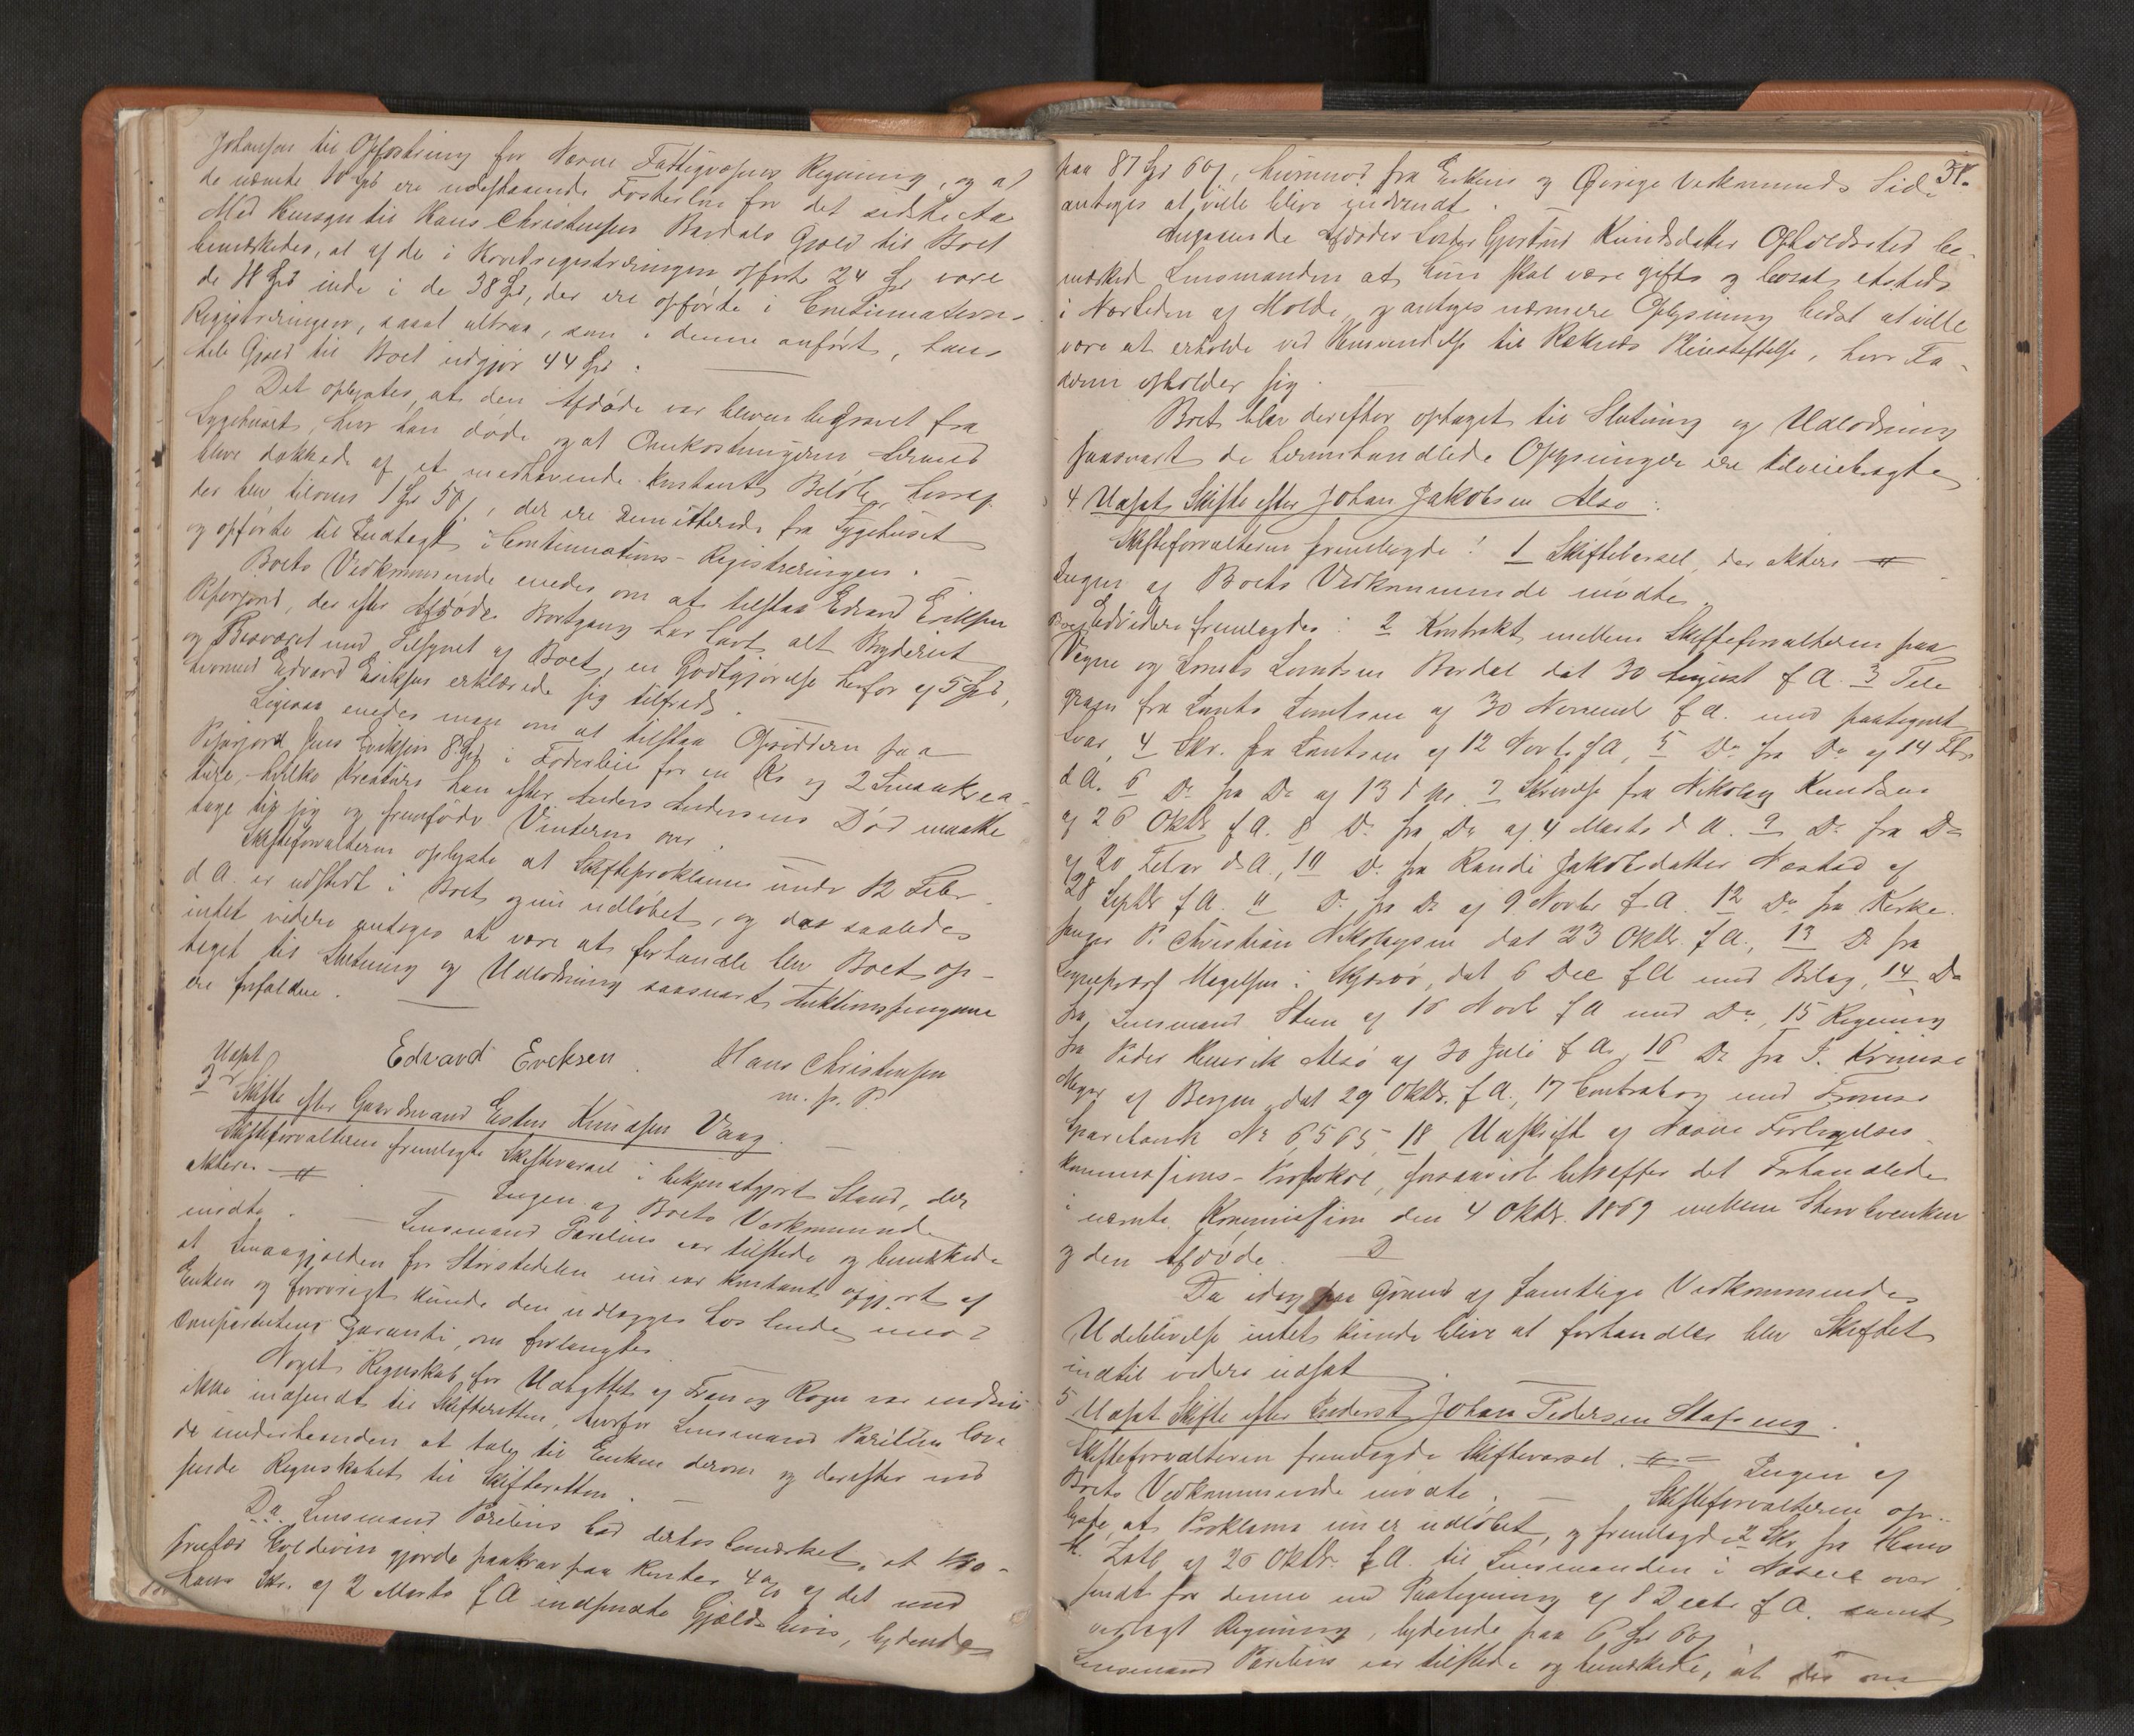 Johansen til Opfostring for Næroe Fattigvæsens Regning, og at
de nævnte 10 Spd ere udestaaende Fosterløn for det sidste Aar
Med Hensyn til Hans Christensen Bardals Gjæld til Boet
bemærkedes, at af de i Hovedregistreringen opførte 24 Spd vare
de 18 Spd inde i de 38 Spd, der ere opførte i Continuations-
Registreringen, saaat altsaa, som i denne anført, hans
hele Gjæld til Boet udgjør 44 Spd.
Det oplystes, at den Afdøde var bleven begravet fra
Sygehuset, hvor han døde og at Omkostningerne derved
bleve dækkede af et medhavende kontant Beløb, hvoraf
der blev tilovers 1 Spd 50 s, der ere remitterede fra Sygehuset
og opførte til Indtægt i Continuations-Registreringen.
Boets Vedkommende enedes om at tilstaa Edvard Eriksen
, der efter Afdødes Bortgang har havt alt Bryderiet
og Besværet med Tilsynet af Boet, en Godtgjørelse herfor af 5 Spd,
hvormed Edvard Eriksen erklærede sig tilfreds.
Ligesaa enedes man om at tilstaa Opsidderen paa
Jens Eriksen 8 Spd i Foderleie for en Ko og 2 Smaakrea-
ture, hvilke Kreature han efter Anders Andersens Død maatte
tage til sig og fremføde Vinteren over.
Skifteforvalteren oplyste at Skifteproklama under 12 Febr
d A. er udstedt i Boet og nu udløbet, og da saaledes
intet videre antoges at være at forhandle blev Boet op-
taget til Slutning og Udlodning saasnart Auktionspengene
ere forfaldne.
Edvard Ericksen. Hans Christensen
m. p. P.
3 Udsat Skifte efter Gaardmand Esten Knudsen Vaag.
Skifteforvalteren fremlagte Skiftevarsel i bekjendtgjort Stand, der
akteres # Ingen af Boets Vedkommende
mødte. Lensmand Parelius var tilstede og bemærkede
at Smaagjælden for Størstedelen nu var kontant opgjort af
Enken og forøvrigt kunde den udlægges hos hende mod
Garanti, om forlangtes
Noget Regnskab for Udbyttet af Tran og Rogn var endnu
ikke indsendt til Skifteretten, hvorfor Lensmand Parelius love-
de underhaanden at tale til Enken derom og derefter ind
sende Regnskabet til Skifteretten.
Da Lensmand Parelius lod derhos bemærket, at Pro-
prietær Coldevin gjorde paakrav paa Renter 4 % af det med
hans Skr. af 2 Marts f A indsendte Gjældsbevis, lydende
34.
paa 87 Spd 60 s, hvormod fra Enkens og Øvrige Vedkommendes Side
antoges at ville blive indvendt.
Angaaende Afdødes Søster Gjertrud Knudsdatters Opholdssted be-
mærkede Lensmanden at hun skal være gift og bosat etsteds
i Nærheden af Molde og antoges nærmere Oplysning bedst at ville
være at erholde ved Henvendelse til Reknæs Pleiestiftelse, hvor Fa-
deren opholder sig.
Boet blev derefter optaget til Slutning og Udlodning
saasnart de her omhandlede Oplysninger ere tilveiebragte
4 Udsat Skifte efter Johan Jakobsen Alsø.
Skifteforvalteren fremlagde: 1 Skiftevarsel, der akteres #
Ingen af Boets Vedkommende mødte.
Endvidere fremlagdes: 2 Kontrakt mellem Skifteforvalteren paa
Boets Vegne og Lorents Lorntsen Bardal dat 30 August f A. 3 Tele
gram fra Lornts Lorntsen af 30 Novembr f A. med paategnet
Svar, 4 Skr. fra Lorntsen af 12 Novbr f A, 5 Do fra Do af 14 Febr
d A. 6 Do fra Do af 13 d M. 7 Skrivelse fra Nikolay Knudsen
af 26 Oktbr f A. 8 Do fra Do af 4 Marts d A. 9 Do fra Do
af 20 Febr d A., 10 Do fra Randi Jakobsdatter Næstad af
28 Septbr f A. 11 Do fra Do af 9 Novbr f A. 12 Do fra Kirke
sanger P. Christian Nikolaysen dat 23 Oktbr. f A., 13 Do fra
Sogneprest Magelsen i Skjervø, dat 6 Dec f A med Bilag, 14 Do
fra Lensmand Steen af 16 Novb f A med Do, 15 Regning
fra Peder Henrik Alsø af 30 Juli f A, 16 Do fra J. Krimse
Meyer af Bergen, dat 29 Oktbr. f A., 17 Contrabog med Tromsø
Sparebank No 6565, 18 Udskrift af Næroe Forligelses
kommissions-Protokol, forsaavidt betreffer det Forhandlede
i nævnte Kommission den 4 Oktbr. 1869 mellem
og den Afdøde.
Da idag paa Grund af samtlige Vedkommendes
Udeblivelse intet kunde blive at forhandles blev Skiftet
indtil videre udsat.
5 Udsat Skifte efter Inderst Johan Pedersen Stafseng.
Skifteforvalteren fremlagde Skiftevarsel. # Ingen af
Boets Vedkommende mødte. Skifteforvalteren op-
lyste, at Proklama nu er udløbet, og fremlagde 2 Skr fra Hans
af 26 Oktbr. f A. til Lensmanden i Næroe over
sendt fra denne med Paategning af 8 Decbr f A. samt
vedlagt Regning, lydende paa 6 Spd 60 s
Lensmand Parelius var tilstede og bemærkede, at der om